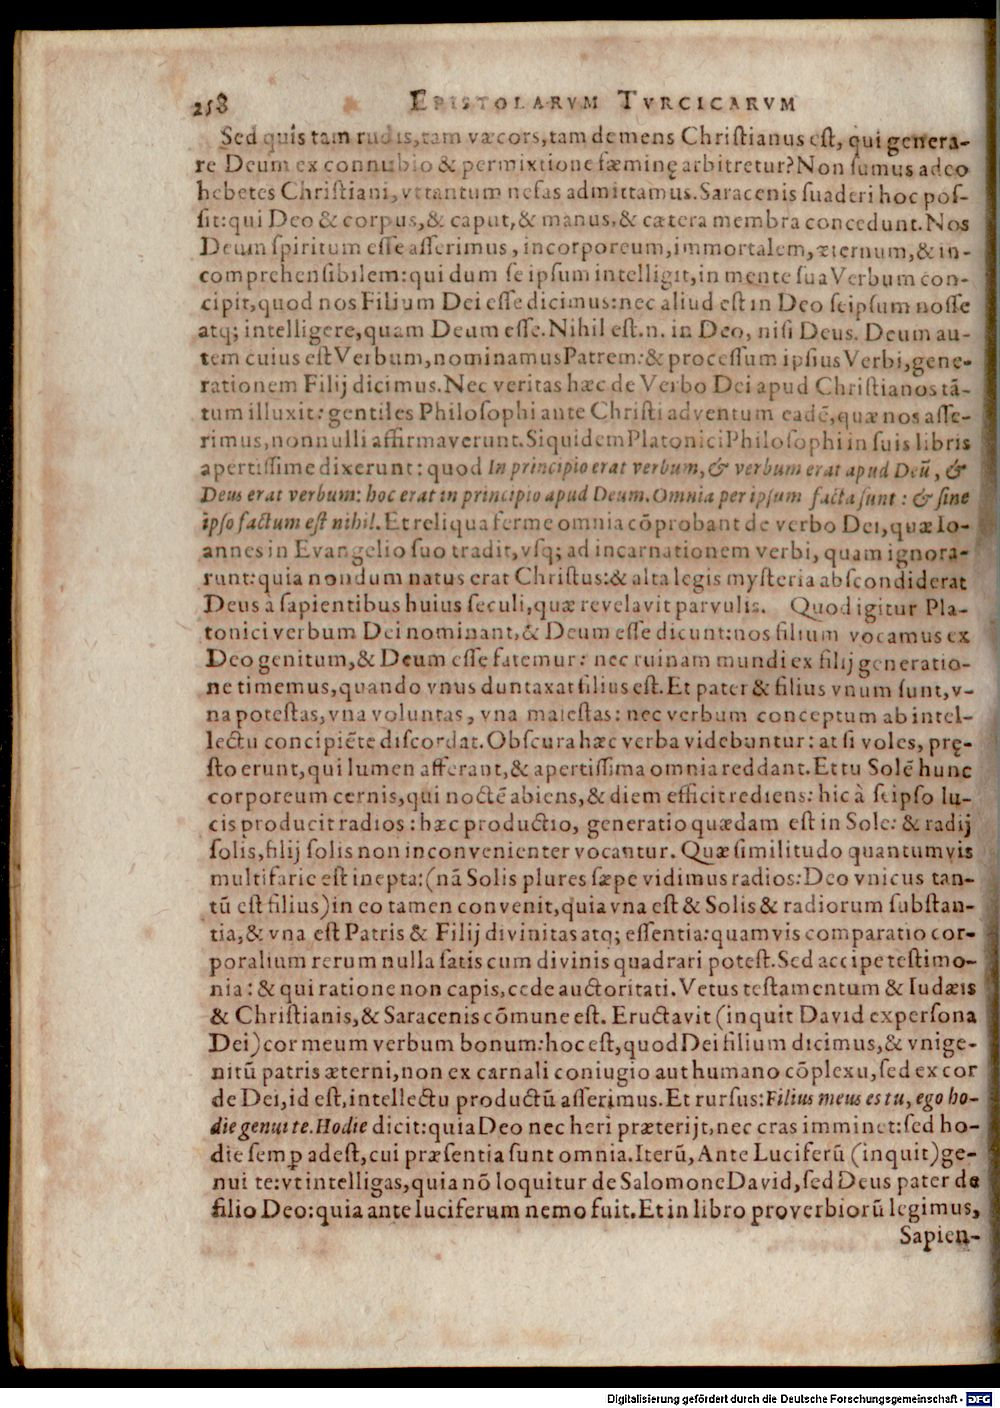 258 EPISTOLARVM TVRCICARVM
Sed quis tam rudis, tam væcors, tam demens Christianus est, qui genera-
re Deum ex connubio & permixtione fæminę arbitretur? Non sumus adeo
hebetes Christiani, vt tantum nefas admittamus. Saracenis suaderi hoc pos-
sit: qui Deo & corpus, & caput, & manus, & cætera membra concedunt. Nos
Deum spiritum esse asserimus, incorporeum, immortalem, æternum, & in-
comprehensibilem: qui dum se ipsum intelligit, in mente sua Verbum con-
cipit, quod nos Filium Dei esse dicimus: nec aliud est in Deo seipsum nosse
atq; intelligere, quam Deum esse. Nihil est .n. in Deo, nisi Deus. Deum au-
tem cuius est Verbum, nominamus Patrem: & processum ipsius Verbi, gene-
rationem Filij dicimus. Nec veritas hæc de Verbo Dei apud Christianos tā-
tum illuxit: gentiles Philosophi ante Christi adventum eadē, quæ nos asse-
rimus, nonnulli affirmaverunt. Siquidem Platonici Philosophi in suis libris
apertissime dixerunt: quod In principio erat verbum, & verbum erat apud Deū, &
Deus erat verbum: hoc erat in principio apud Deum. Omnia per ipsum facta sunt: & sine
ipso factum est nihil. Et reliqua ferme omnia cōprobant de verbo Dei, quæ Io-
annes in Evangelio suo tradit, vsq; ad incarnationem verbi, quam ignora-
runt: quia nondum natus erat Christus: & alta legis mysteria abscondiderat
Deus à sapientibus huius seculi, quæ revelavit parvulis. Quod igitur Pla-
tonici verbum Dei nominant, & Deum esse dicunt: nos filium vocamus ex
Deo genitum, & Deum esse fatemur: nec ruinam mundi ex filij generatio-
ne timemus, quando vnus duntaxat filius est. Et pater & filius vnum sunt, v-
na potestas, vna voluntas, vna maiestas: nec verbum conceptum ab intel-
lectu concipiēte discordat. Obscura hæc verba videbuntur: at si voles, pręs-
to erunt, qui lumen afferant, & apertissima omnia reddant. Et tu Solē hunc
corporeum cernis, qui noctē abiens, & diem efficit rediens: hic à seipso lu-
cis producit radios: hæc productio, generatio quædam est in Sole: & radij
solis, filij solis non inconvenienter vocantur. Quæ similitudo quantumvis
multifarie est inepta: (nā Solis plures sæpe vidimus radios: Deo vnicus tan-
tū est filius) in eo tamen convenit, quia vna est & Solis & radiorum substan-
tia, & vna est Patris & Filij divinitas atq; essentia: quamvis comparatio cor-
poralium rerum nulla satis cum divinis quadrari potest. Sed accipe testimo-
nia: & qui ratione non capis, cede auctoritati. Vetus testamentum & Iudæis
& Christianis, & Saracenis cōmune est. Eructavit (inquit David ex persona
Dei) cor meum verbum bonum: hoc est, quod Dei filium dicimus, & vnige-
nitū patris æterni, non ex carnali coniugio aut humano cōplexu, sed ex cor
de Dei, id est, intellectu productū asserimus. Et rursus: Filius meus es tu, ego ho-
die genui te. Hodie dicit: quia Deo nec heri præterijt, nec cras imminet: sed ho-
die semꝑ adest, cui præsentia sunt omnia. Iterū, Ante Luciferū (inquit) ge-
nui te: vt intelligas, quia nō loquitur de Salomone David, sed Deus pater de
filio Deo: quia ante luciferum nemo fuit. Et in libro proverbiorū legimus,
Sapien-
Digitalisierung gefördert durch die Deutsche Forschungsgemeinschaft - DFG